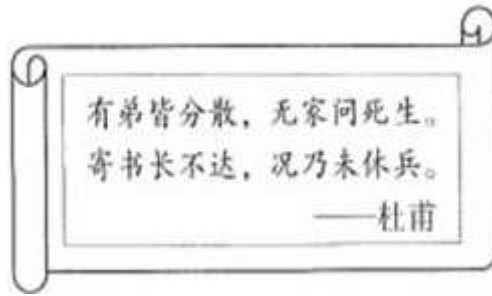 有弟皆分散，无家问死生。
寄书长不达，况乃未休兵。
——杜甫